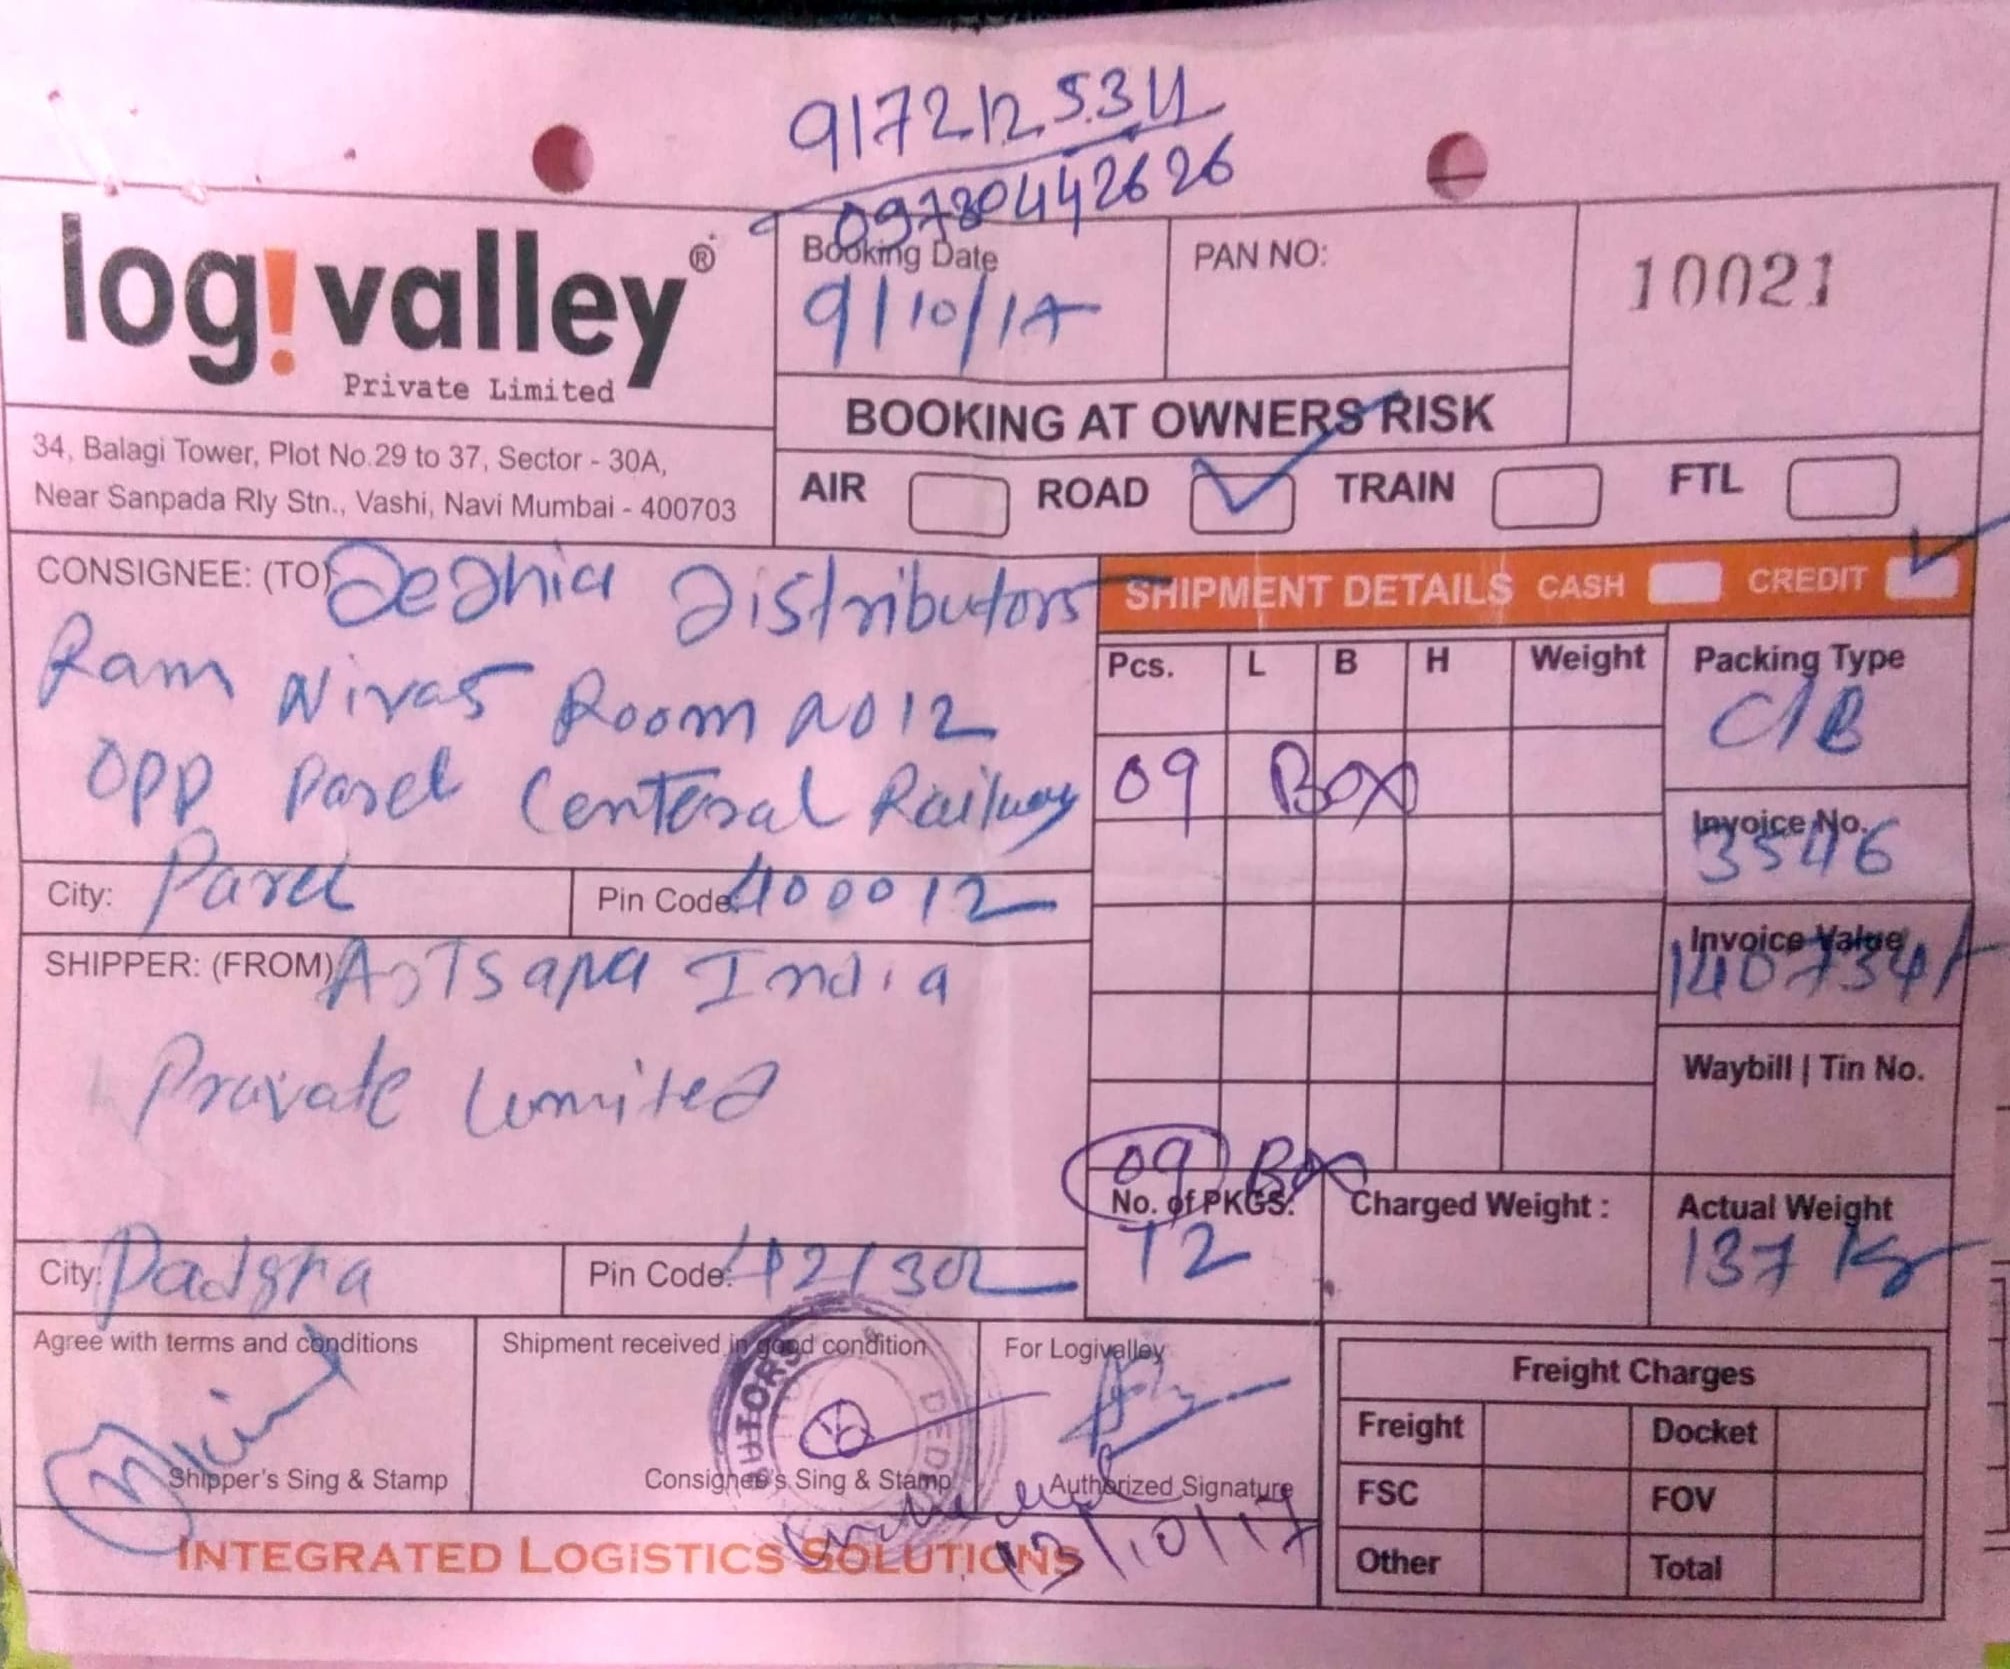 9172125311
09730442626
log!valley®
Private Limited
34, Balagi Tower, Plot No.29 to 37, Sector - 30A,
Near Sanpada Rly Stn., Vashi, Navi Mumbai - 400703
Booking Date
9/10/17
PAN NO:
10021
BOOKING AT OWNERS RISK
AIR ROAD TRAIN FTL
CONSIGNEE: (TO) Dedhia Distributors
Ram Nivas Room no 12
opp Parel Centeral Railway
City: Parel Pin Code: 400012
SHIPPER: (FROM) India
Pravate Lumited
City: Padgha Pin Code: 421302
SHIPMENT DETAILS CASH CREDIT
Pcs. L B H Weight
09 Box
Packing Type
C/B
Invoice No.
3546
Invoice Value
140734/-
Waybill | Tin No.
09 Box
No. of PKGS.
12
Charged Weight :
Actual Weight
137 Kg
Agree with terms and conditions
Shipper's Sing & Stamp
Shipment received in good condition
Consignee's Sing & Stamp
For Logivalley
Authorized Signature
13/10/17
INTEGRATED LOGISTICS SOLUTIONS
Freight Charges
Freight Docket
FSC FOV
Other Total